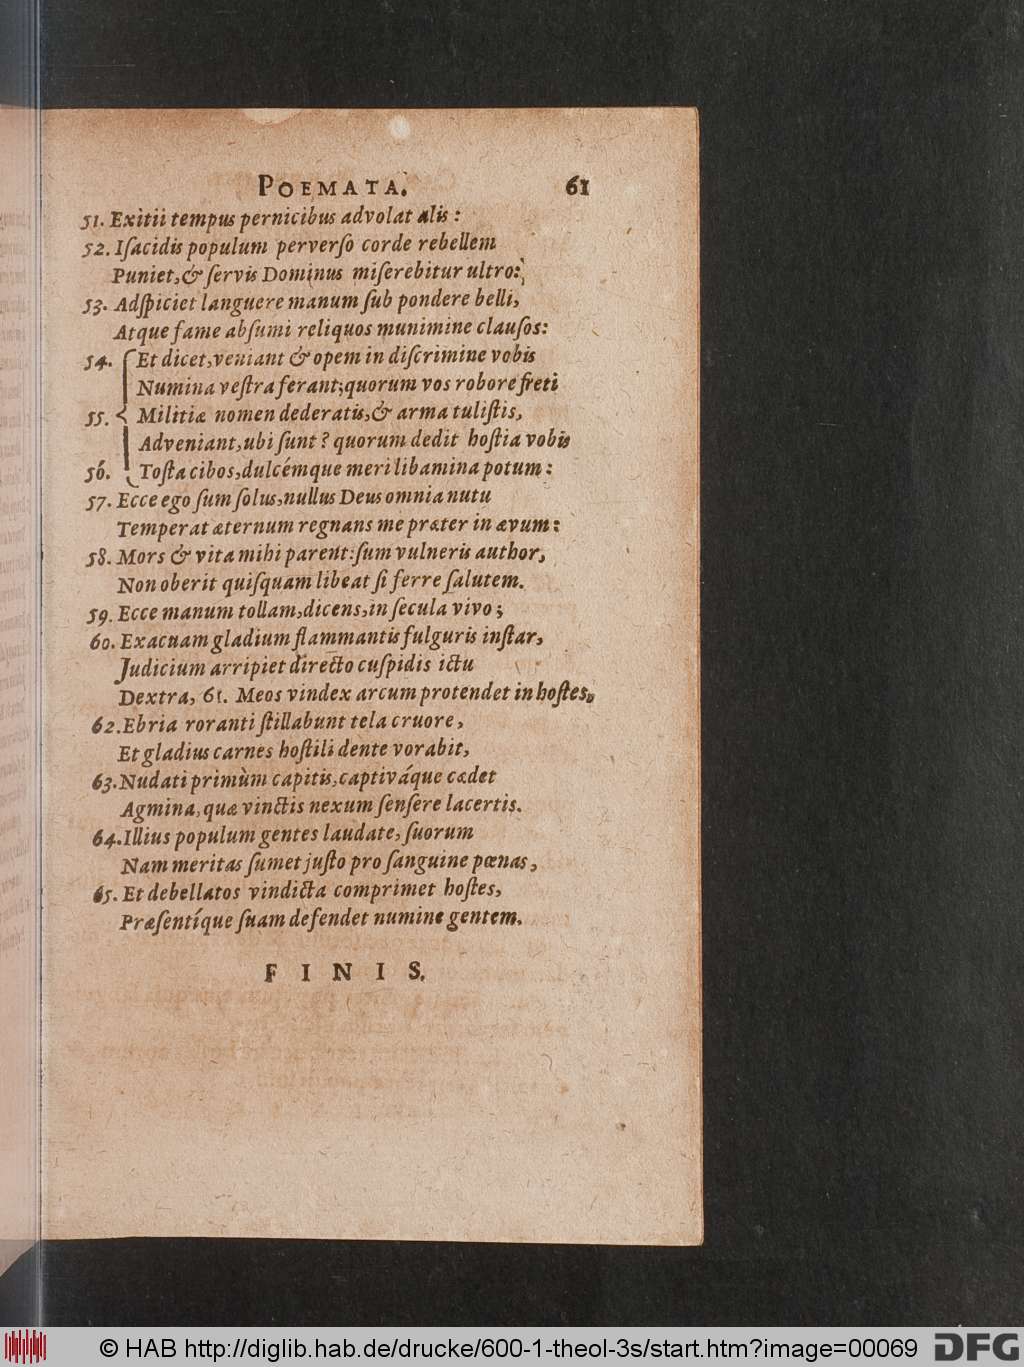 POEMATA. 61
51. Exitii tempus pernicibus advolat alis:
52. Iſacidis populum perverſo corde rebellem
Puniet, & ſervis Dominus miſerebitur ultro:
53. Adſpiciet languere manum ſub pondere belli,
Atque fame abſumi reliquos munimine clauſos:
54. Et dicet, veniant & opem in diſcrimine vobis
Numina veſtra ferant; quorum vos robore freti
55. Militiæ nomen dederatis, & arma tuliſtis,
Adveniant, ubi ſunt? quorum dedit hoſtia vobis
56. Toſta cibos, dulcémque meri libamina potum:
57. Ecce ego ſum ſolus, nullus Deus omnia nutu
Temperat æternum regnans me præter in ævum:
58. Mors & vita mihi parent: ſum vulneris author,
Non oberit quiſquam libeat ſi ferre ſalutem.
59. Ecce manum tollam, dicens, in ſecula vivo;
60. Exacuam gladium flammantis fulguris inſtar,
Judicium arripiet directo cuſpidis ictu
Dextra, 61. Meos vindex arcum protendet in hoſtes,
62. Ebria roranti ſtillabunt tela cruore,
Et gladius carnes hoſtili dente vorabit,
63. Nudati primùm capitis, captiváque cædet
Agmina, quæ vinctis nexum ſenſere lacertis.
64. Illius populum gentes laudate, ſuorum
Nam meritas ſumet juſto pro ſanguine pœnas,
65. Et debellatos vindicta comprimet hoſtes,
Præſentíque ſuam defendet numine gentem.
FINIS.
© HAB http://diglib.hab.de/drucke/600-1-theol-3s/start.htm?image=00069 DFG